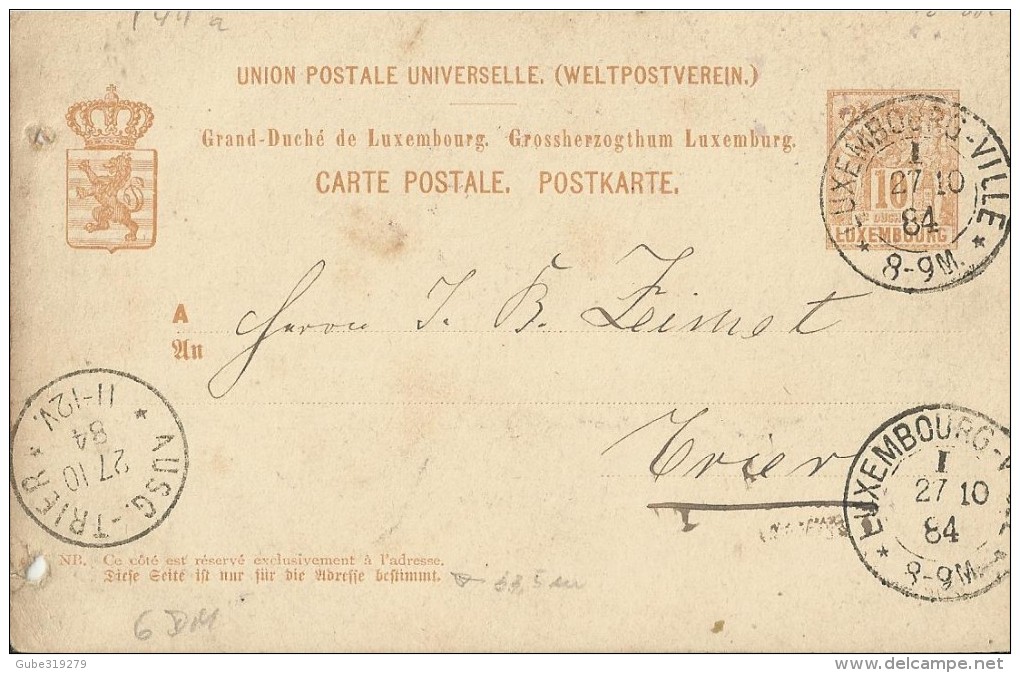 UNION POSTALE UNIVERSELLE. (WELTPOSTVEREIN.)
Grand-Duché de Luxembourg. Grossherzogthum Luxemburg.
CARTE POSTALE. POSTKARTE.
10
LUXEMBOURG
LUXEMBOURG-VILLE
I
27 10
84
8-9M.
A
An
Herrn J. B. Zeimet
Trier
LUXEMBOURG-V
I
27 10
84
8-9M.
AUSG.-TRIER
27 10
84
11-12V.
NB. Ce côté est réservé exclusivement à l'adresse.
Diese Seite ist nur für die Adresse bestimmt.
6 DM
Gube319279
delcampe.net